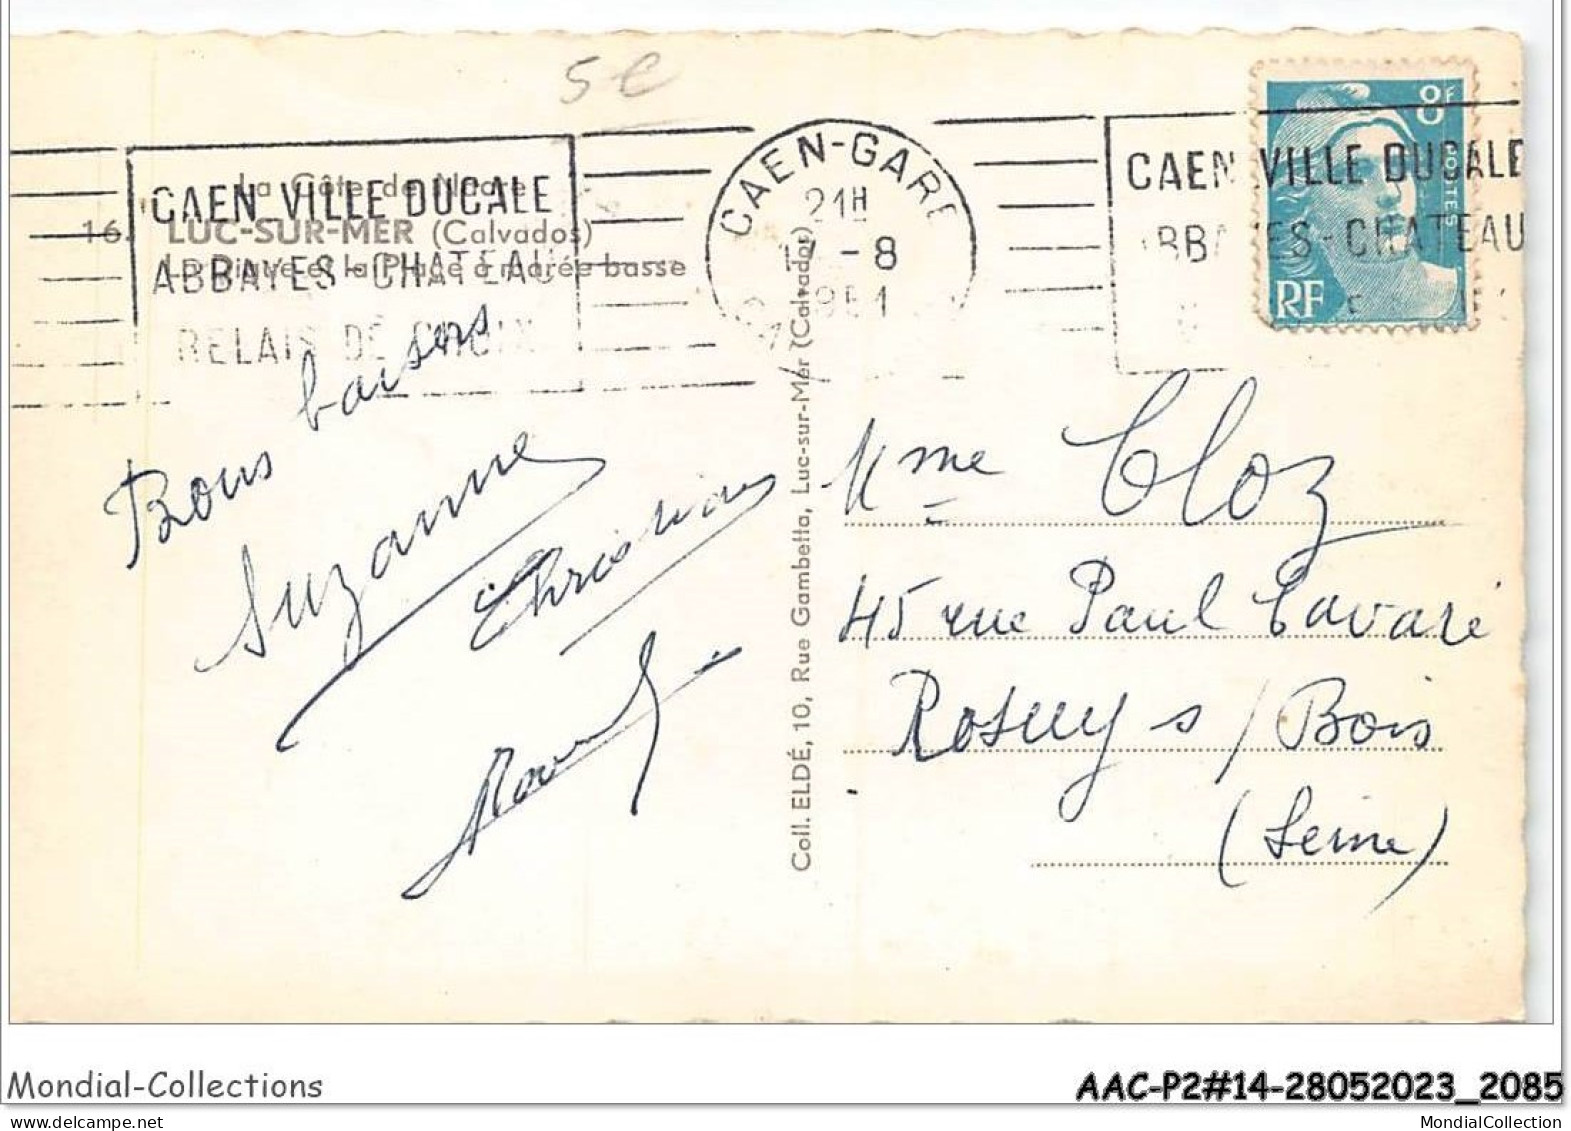 5 €
16. La Côte de Nacre
LUC-SUR-MER (Calvados)
et la Plage à marée basse
CAEN VILLE DUCALE
ABBAYES - CHATEAU
RELAIS DE CHOIX
CAEN-GARE
21H
17 - 8
1951
CAEN VILLE DUCALE
ABBAYES - CHATEAU
8F
POSTES
RF
Bons baisers
Suzanne
Christian
Coll. ELDÉ, 10, Rue Gambetta, Luc-sur-Mer (Calvados)
Mme Cloz
45 rue Paul Cavaré
Rosny s/Bois
(Seine)
Mondial-Collections
AAC-P2#14-28052023_2085
MondialCollection
www.delcampe.net